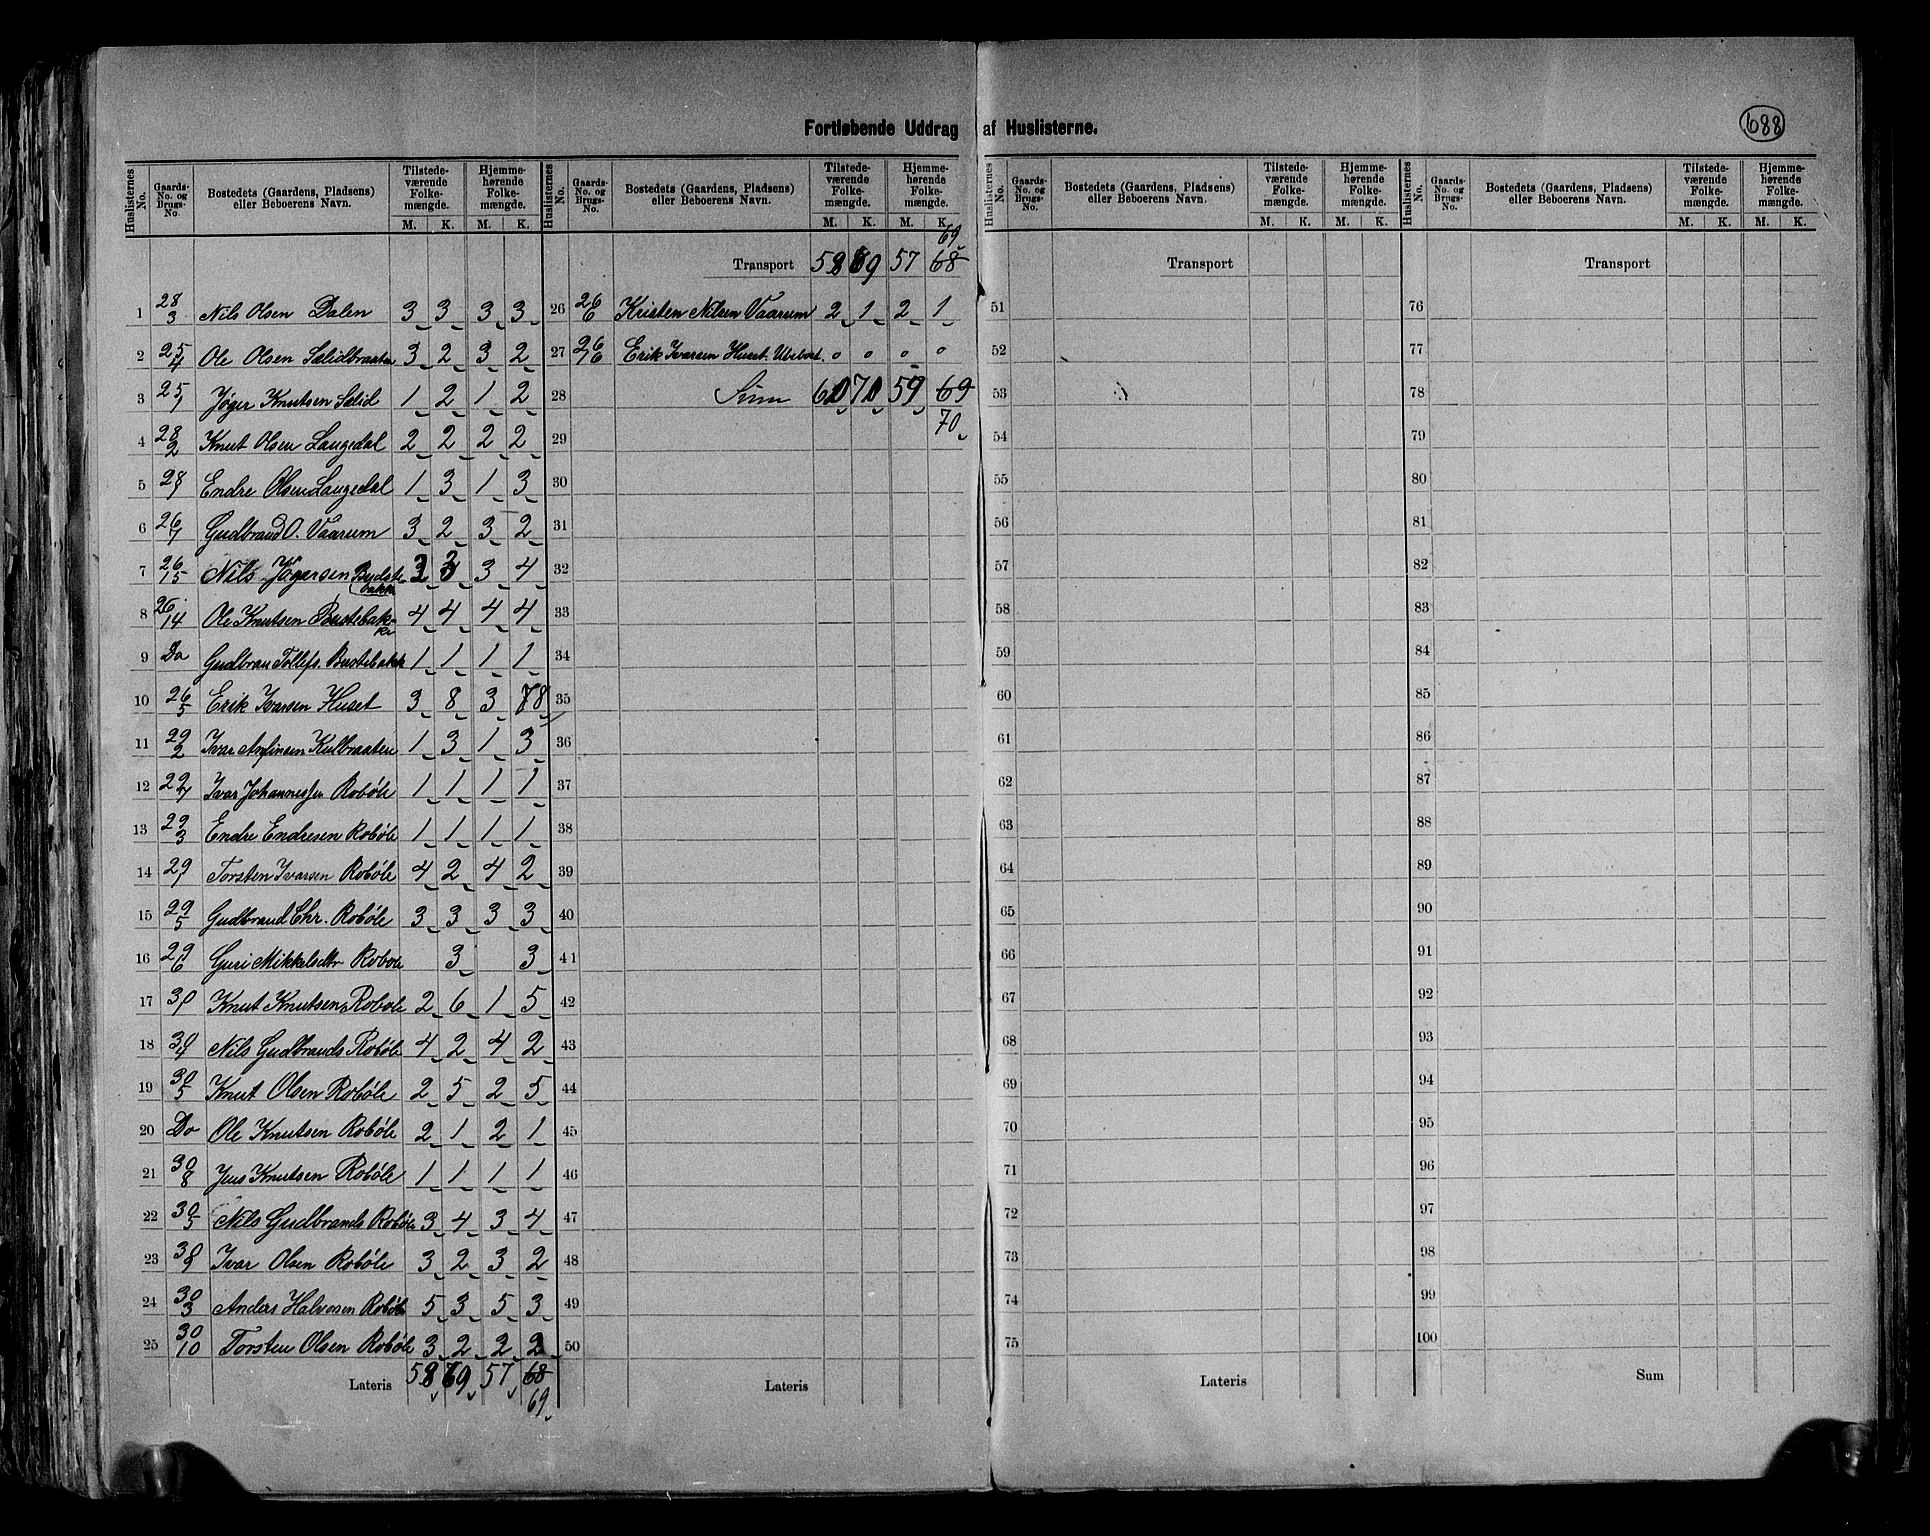 Fortløbende Uddrag af Huslisterne.
688
Huslisternes No. Gaards-No. og Brugs-No. Bostedets (Gaardens, Pladsens) eller Beboerens Navn. Tilstedeværende Folkemængde. M. K. Hjemmehørende Folkemængde. M. K.
1 28/3 Nils Olsen Dalen 3 3 3 3
2 25/4 Ole Olsen Sælidbraaten 3 2 3 2
3 25/1 Jøger Knutsen Sælid 1 2 1 2
4 28/2 Knut Olsen Langedal 2 2 2 2
5 28/1 Endre Olsen Langedal 1 3 1 3
6 26/7 Gudbrand O. Vaarum 3 2 3 2
7 26/15 Nils Jøgersen Budstebakk 3 3 3 4
8 26/14 Ole Knutsen Bustebakke 4 4 4 4
9 Do Gudbran Tollefs. Bustebakk 1 1 1 1
10 26/5 Erik Ivarsen Huset 3 8 3 8
11 29/2 Ivar Arfinsen Kulbraaten 1 3 1 3
12 29/4 Ivar Johannessen Robøle 1 1 1 1
13 29/3 Endre Endresen Robøle 1 1 1 1
14 29/1 Torsten Ivarsen Robøle 4 2 4 2
15 29/5 Gudbrand Chr. Robøle 3 3 3 3
16 29/6 Guri Mikkelsdtr Robole 3 3
17 30/1 Knut Knutsen Robole 2 6 1 5
18 30/4 Nils Gudbrands Robøle 4 2 4 2
19 30/5 Knut Olsen Robøle 2 5 2 5
20 Do Ole Knutsen Robøle 2 1 2 1
21 30/8 Jens Knutsen Robøle 1 1 1 1
22 30/5 Nils Gudbrands Robøle 3 4 3 4
23 30/9 Ivar Olsen Robøle 3 2 3 2
24 30/3 Anders Halvorsen Robøle 5 3 5 3
25 30/10 Torsten Olsen Robøle 3 2 2 2
Lateris 58 69 57 68
69
Huslisternes No. Gaards-No. og Brugs-No. Bostedets (Gaardens, Pladsens) eller Beboerens Navn. Tilstedeværende Folkemængde. M. K. Hjemmehørende Folkemængde. M. K.
69
Transport 58 69 57 68
26 26/6 Kristen Nilsen Vaarum 2 1 2 1
27 26/76 Erik Ivarsen Huset. Ubeboet. 0 0 0 0
28 Sum 60 70 59 69
70
29
30
31
32
33
34
35
36
37
38
39
40
41
42
43
44
45
46
47
48
49
50
Lateris
Huslisternes No. Gaards-No. og Brugs-No. Bostedets (Gaardens, Pladsens) eller Beboerens Navn. Tilstedeværende Folkemængde. M. K. Hjemmehørende Folkemængde. M. K.
Transport
51
52
53
54
55
56
57
58
59
60
61
62
63
64
65
66
67
68
69
70
71
72
73
74
75
Lateris
Huslisternes No. Gaards-No. og Brugs-No. Bostedets (Gaardens, Pladsens) eller Beboerens Navn. Tilstedeværende Folkemængde. M. K. Hjemmehørende Folkemængde. M. K.
Transport
76
77
78
79
80
81
82
83
84
85
86
87
88
89
90
91
92
93
94
95
96
97
98
99
100
Sum